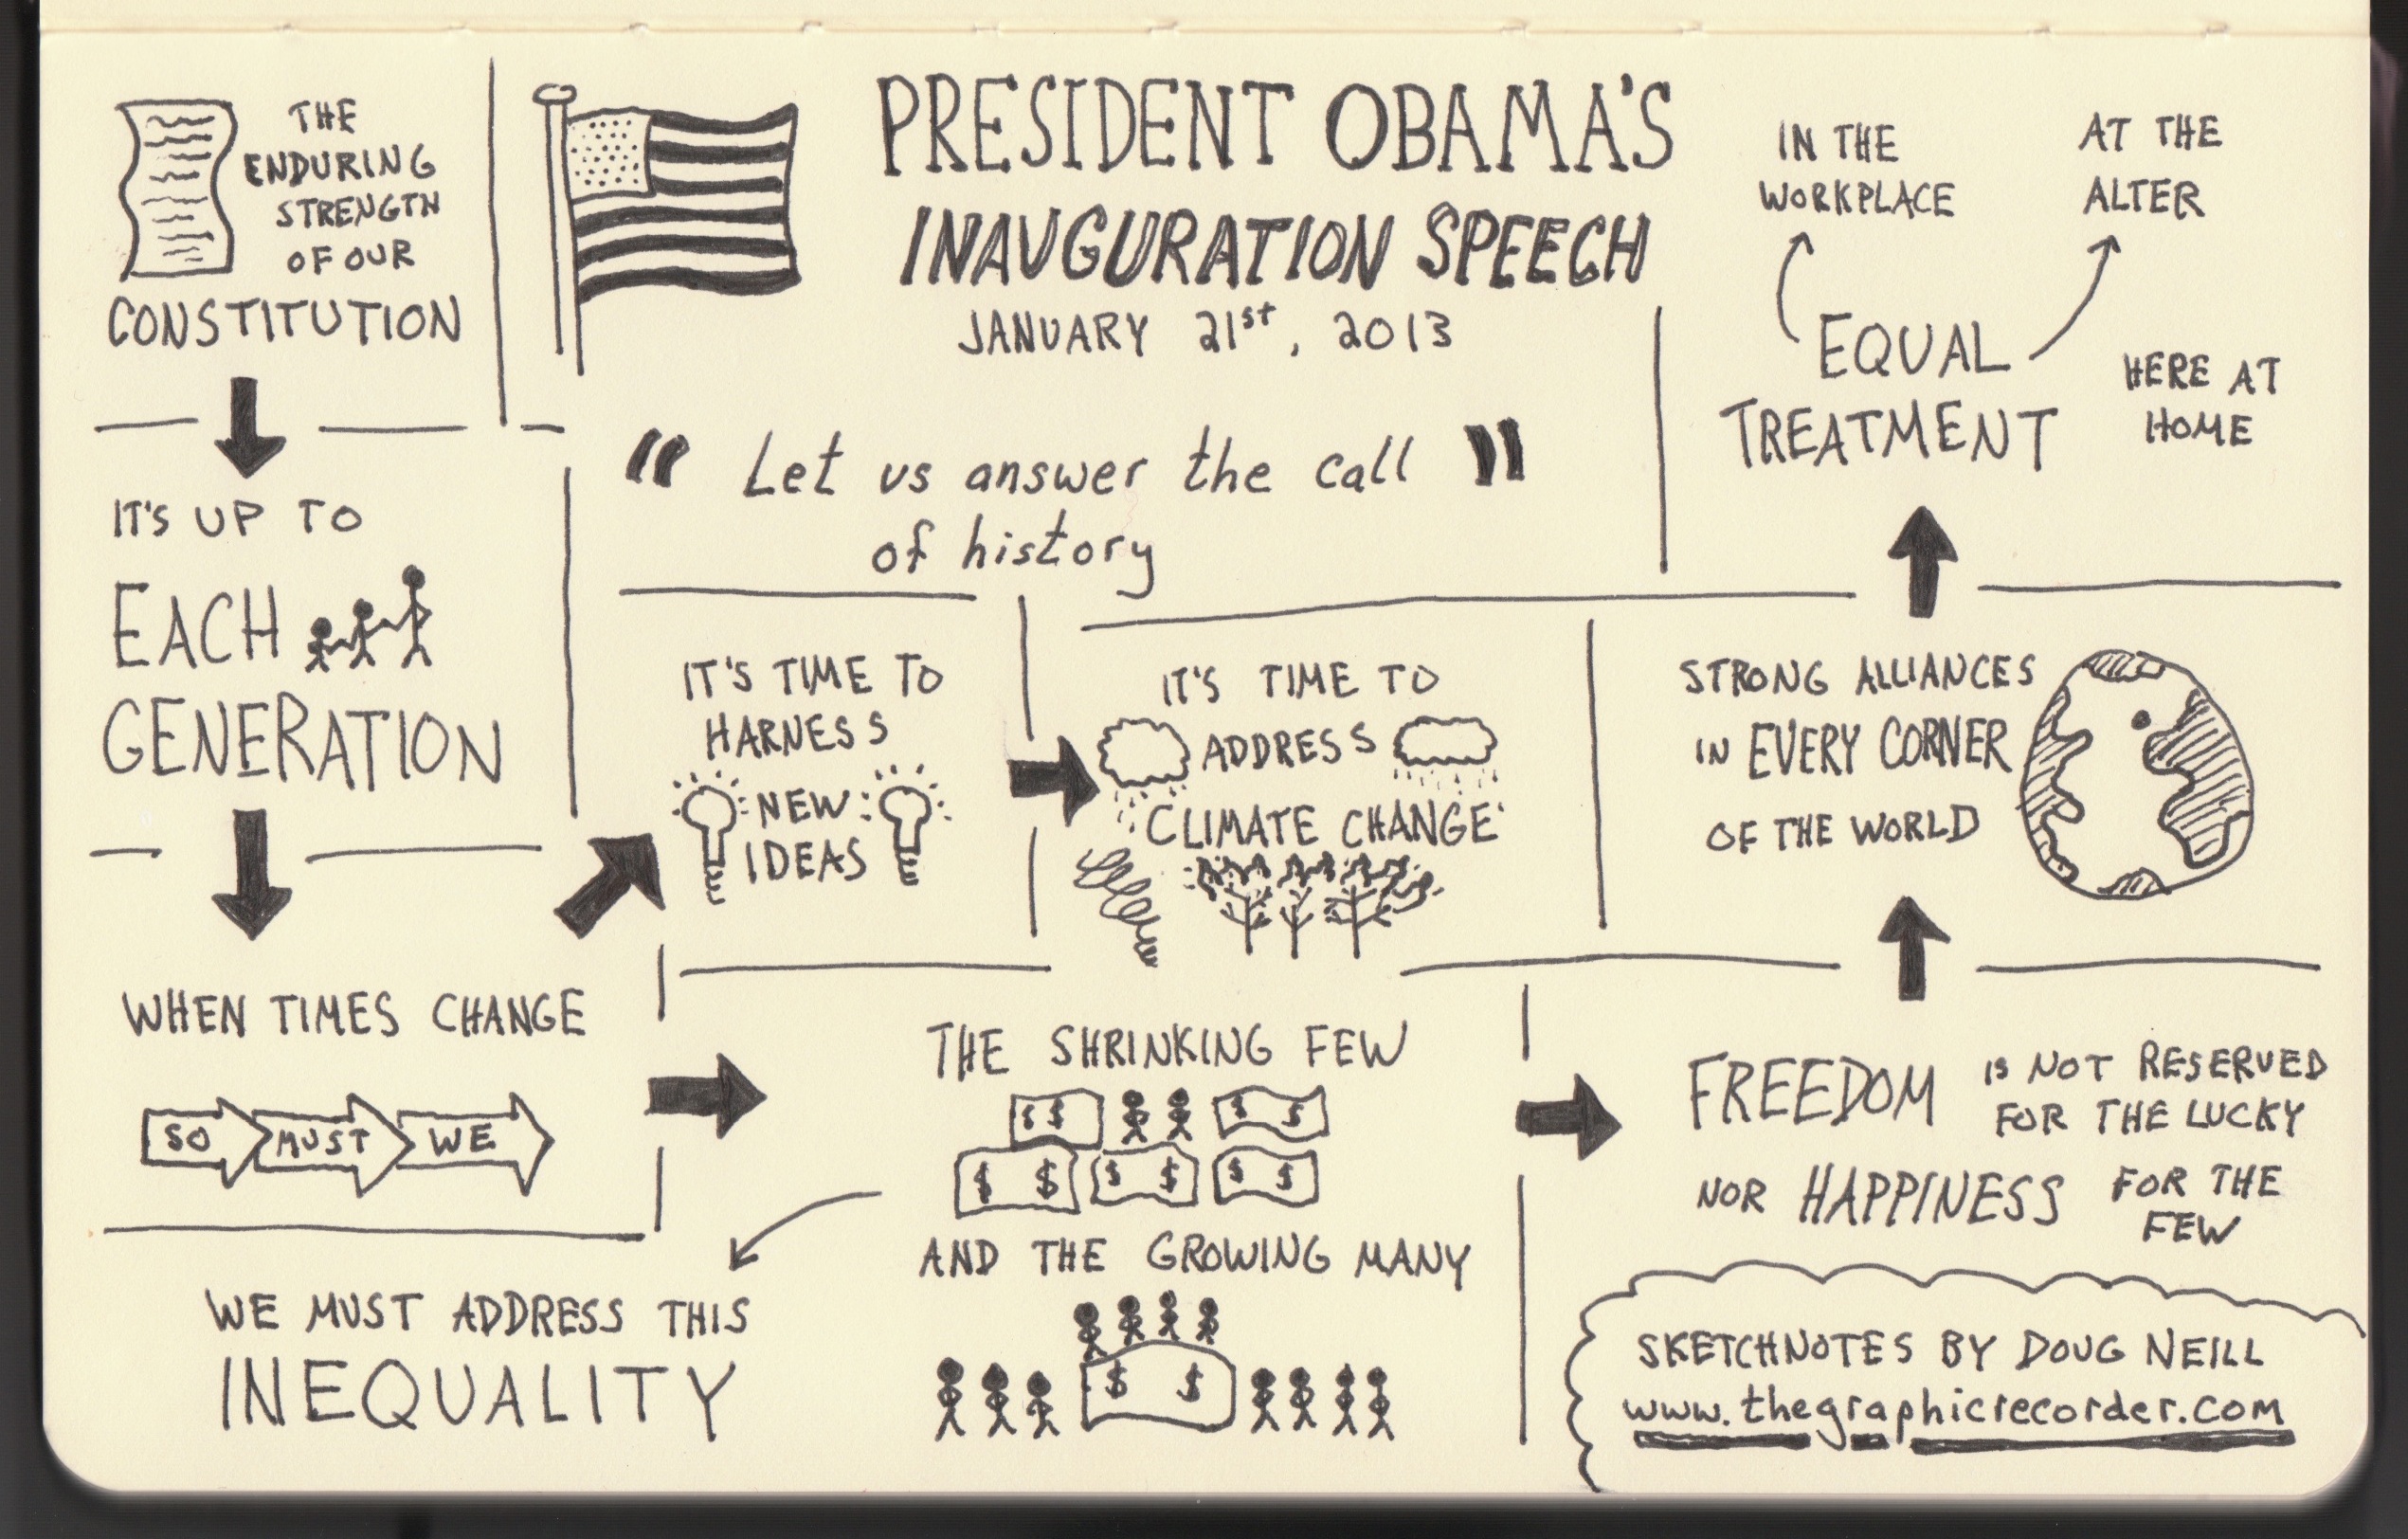 THE
ENDURING
STRENGTH
OF OUR
CONSTITUTION
PRESIDENT OBAMA'S
INAUGURATION SPEECH
JANUARY 21st, 2013
" Let us answer the call "
of history
IT'S UP TO
EACH
GENERATION
WHEN TIMES CHANGE
SO MUST WE
IT'S TIME TO
HARNESS
NEW
IDEAS
IT'S TIME TO
ADDRESS
CLIMATE CHANGE
THE SHRINKING FEW
$ $ $ $
$ $ $ $ $ $
AND THE GROWING MANY
$ $
WE MUST ADDRESS THIS
INEQUALITY
FREEDOM IS NOT RESERVED
FOR THE LUCKY
NOR HAPPINESS FOR THE
FEW
STRONG ALLIANCES
IN EVERY CORNER
OF THE WORLD
EQUAL
TREATMENT
IN THE
WORKPLACE
AT THE
ALTER
HERE AT
HOME
SKETCHNOTES BY DOUG NEILL
www.thegraphicrecorder.com